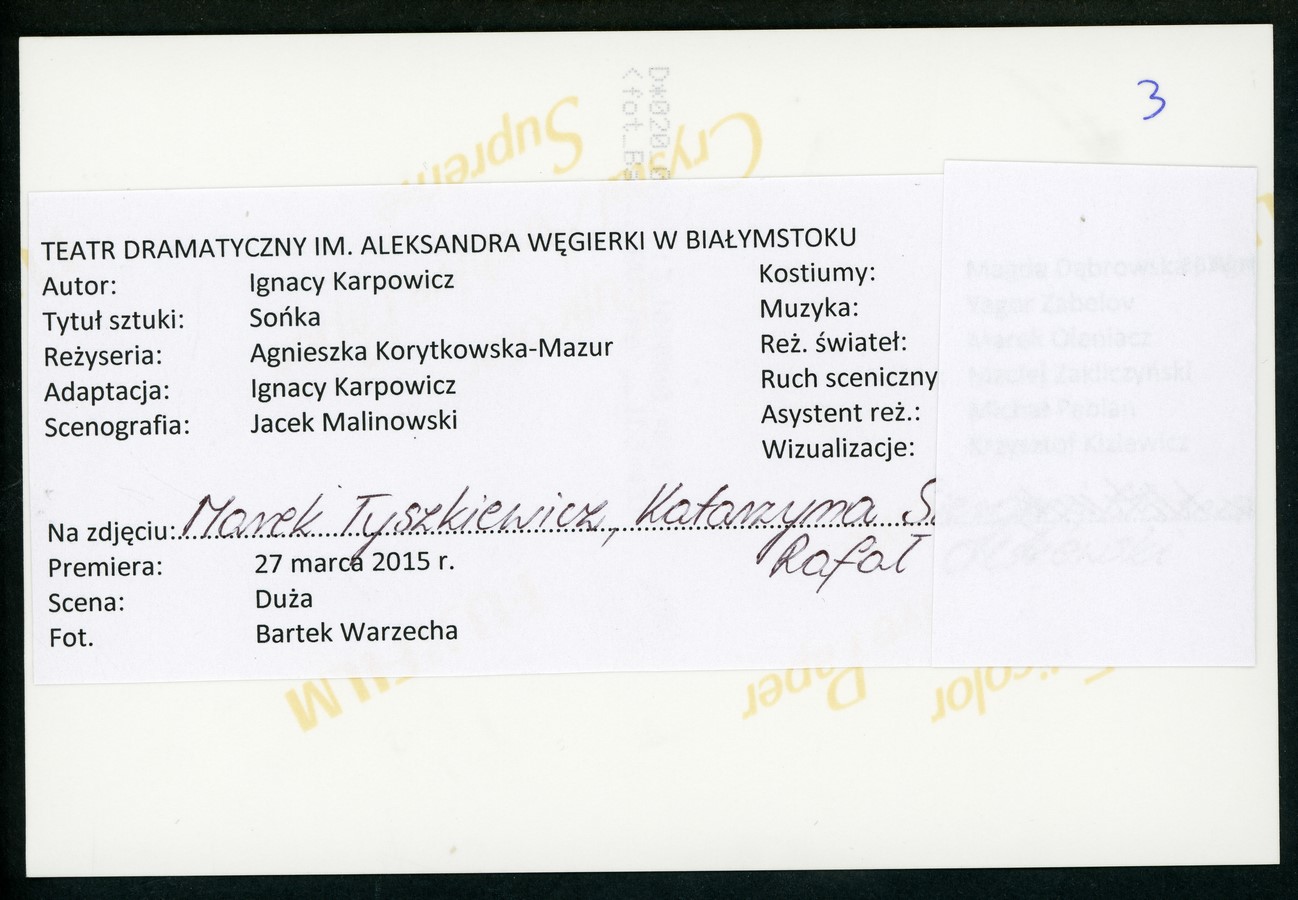 3
TEATR DRAMATYCZNY IM. ALEKSANDRA WĘGIERKI W BIAŁYMSTOKU
Autor: Ignacy Karpowicz Kostiumy: Magda Dąbrowska
Tytuł sztuki: Sońka Muzyka: Yegor Zabelov
Reżyseria: Agnieszka Korytkowska-Mazur Reż. świateł: Marek Oleniacz
Adaptacja: Ignacy Karpowicz Ruch sceniczny Maciej Zakliczyński
Scenografia: Jacek Malinowski Asystent reż.: Michał Pabian
Wizualizacje: Krzysztof Kiziewicz
Na zdjęciu: Marek Tyszkiewicz, Katarzyma S.
Rafał
Premiera: 27 marca 2015 r.
Scena: Duża
Fot. Bartek Warzecha
Supreme
Crys
FILM
Paper